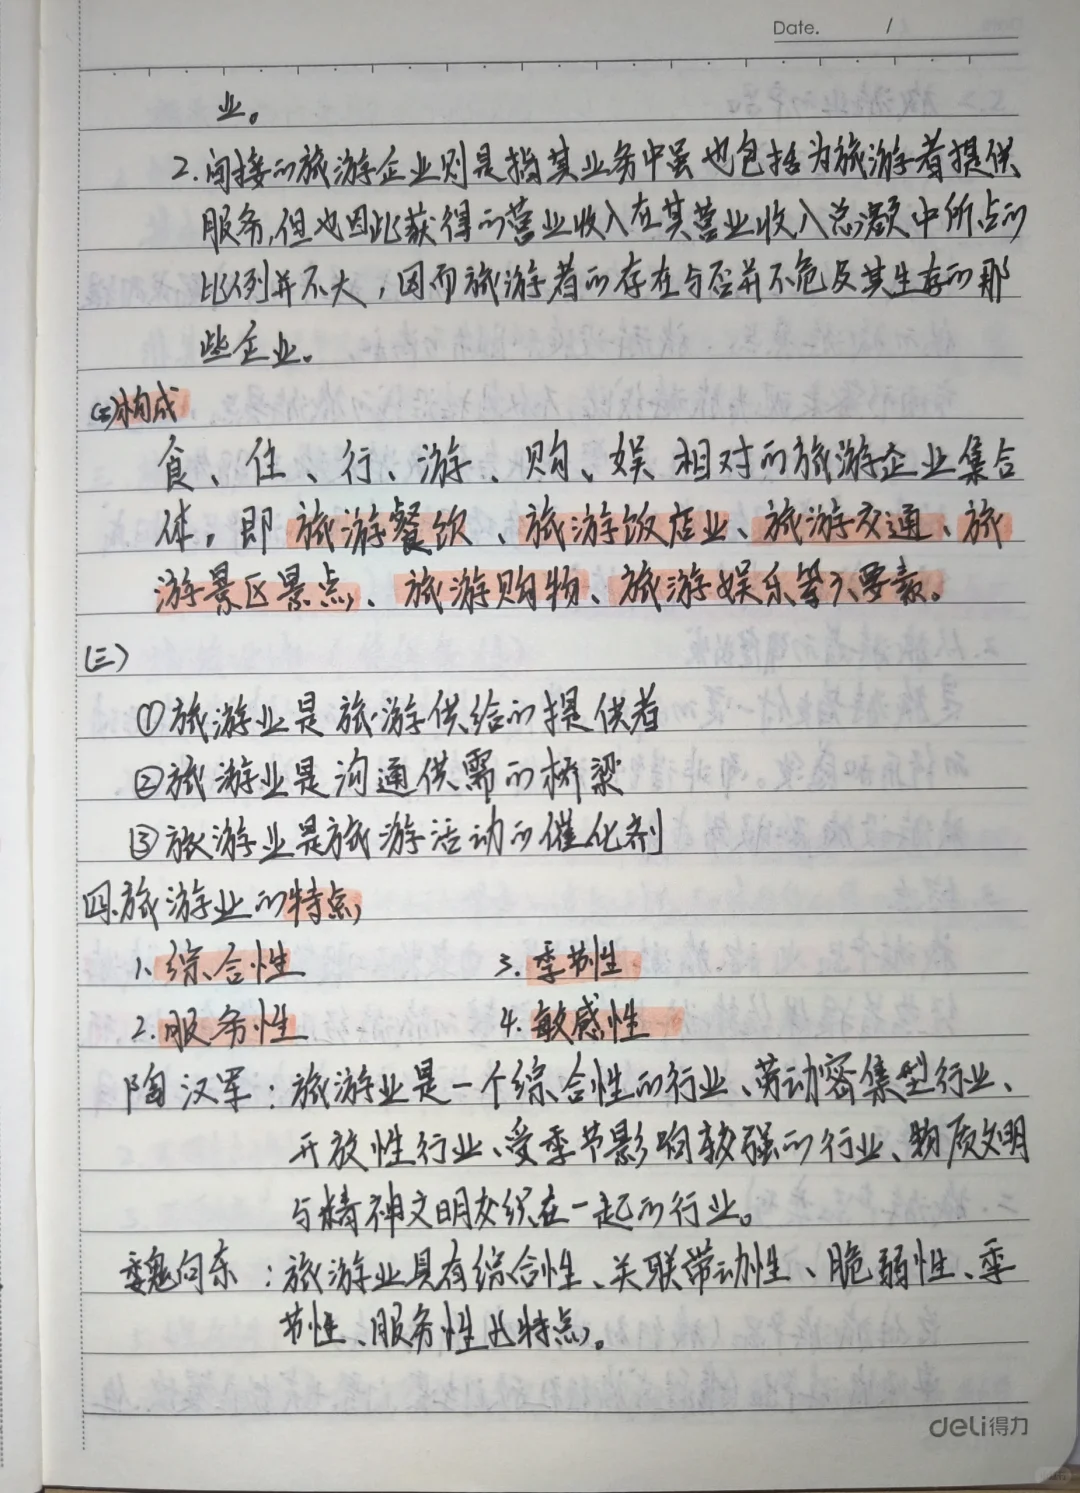 Date. /
业。
2.间接的旅游企业则是指其业务中虽也包括为旅游者提供
服务,但也因此获得的营业收入在其营业收入总额中所占的
比例并不大,因而旅游者的存在与否并不危及其生存的那
些企业。
(二)构成
食、住、行、游、购、娱相对的旅游企业集合
体,即旅游餐饮、旅游饭店业、旅游交通、旅
游景区景点、旅游购物、旅游娱乐等六要素。
(三)
①旅游业是旅游供给的提供者
②旅游业是沟通供需的桥梁
③旅游业是旅游活动的催化剂
四.旅游业的特点
1.综合性 3.季节性
2.服务性 4.敏感性
陶汉军:旅游业是一个综合性的行业、劳动密集型行业、
开放性行业、受季节影响较强的行业、物质文明
与精神文明交织在一起的行业。
魏向东:旅游业具有综合性、关联带动性、脆弱性、季
节性、服务性 特点。
deli得力